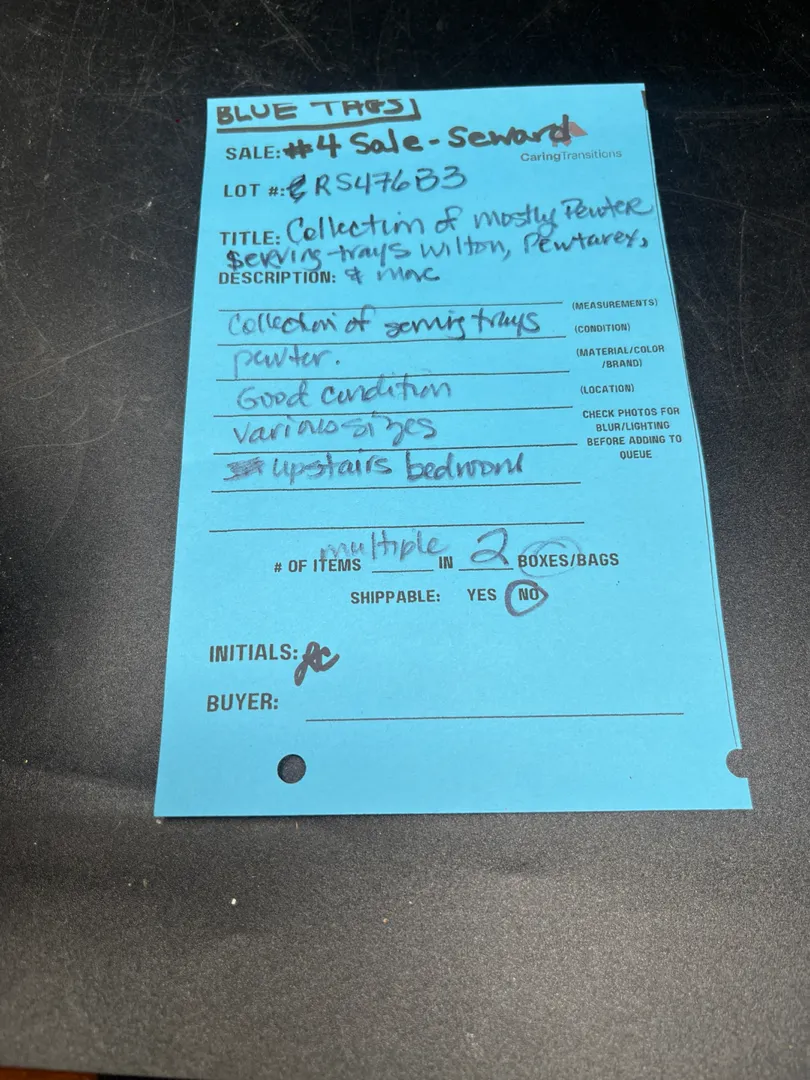 BLUE TAGS
SALE: #4 Sale - Seward
CaringTransitions
LOT #: RS476B3
TITLE: Collection of mostly Pewter
Serving trays Wilton, Pewtarex,
DESCRIPTION: & more
(MEASUREMENTS)
Collection of serving trays (CONDITION)
pewter. (MATERIAL/COLOR
/BRAND)
Good condition (LOCATION)
various sizes CHECK PHOTOS FOR
BLUR/LIGHTING
BEFORE ADDING TO
QUEUE
upstairs bedroom
# OF ITEMS multiple IN 2 BOXES/BAGS
SHIPPABLE: YES NO
INITIALS:
BUYER: